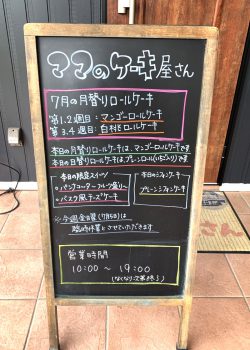 ママのケーキ屋さん
7月の月替りロールケーキ
第1.2週目: マンゴーロールケーキ
第3.4週目: 白桃ロールケーキ
本日の月替りロールケーキは、マンゴーロールケーキです
本日のロールケーキは、プレーンロール(いちご入り)です
本日の限定スイーツ
・パンケーキ フルーツ盛り
・バスク風チーズケーキ
本日のシフォンケーキ
プレーンシフォンケーキ
※今週金曜日(7月5日)は
臨時休業とさせていただきます
営業時間
10:00 〜 19:00
(なくなり次第終了)